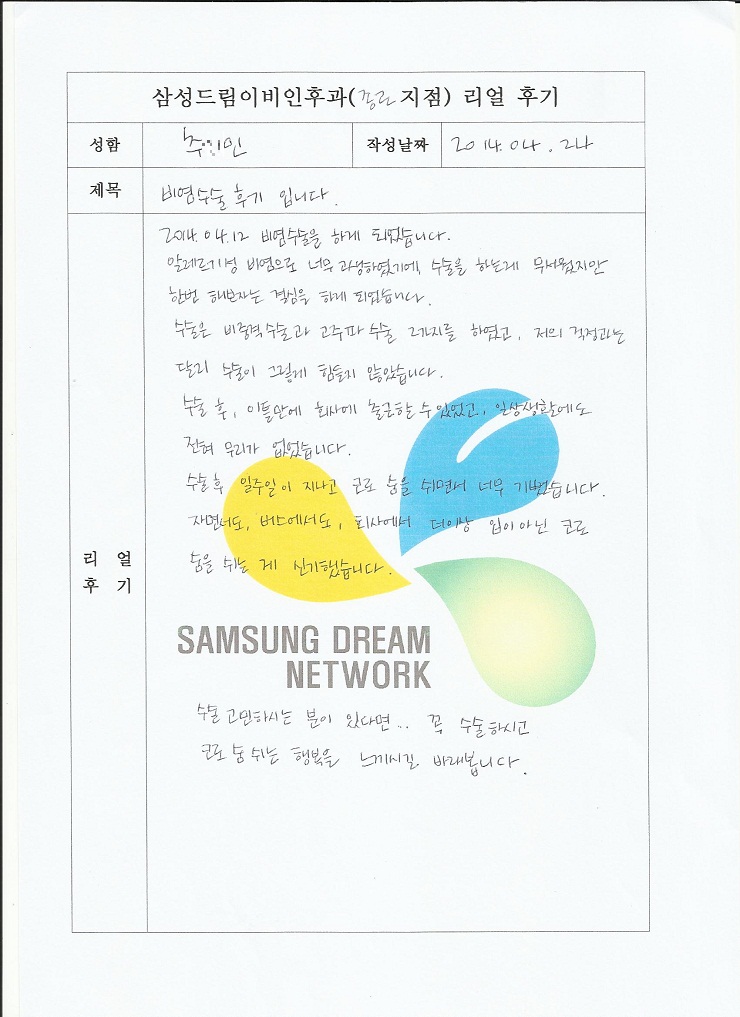 삼성드림이비인후과(종로지점) 리얼 후기
성함 추 민 작성날짜 2014. 04. 24
제목 비염수술 후기 입니다.
리얼 후기
2014. 04. 12 비염수술을 하게 되었습니다.
알레르기성 비염으로 너무 고생하였기에, 수술을 하는게 무서웠지만
한번 해보자는 결심을 하게 되었습니다.
수술은 비중격수술과 고주파 수술 2가지를 하였고, 저의 걱정과는
달리 수술이 그렇게 힘들지 않았습니다.
수술 후, 이틀만에 회사에 출근할 수 있었고, 일상생활에도
전혀 무리가 없었습니다.
수술후 일주일이 지나고 코로 숨을 쉬면서 너무 기뻤습니다.
자면서도, 버스에서도, 회사에서 더이상 입이 아닌 코로
숨을 쉬는 게 신기했습니다.
SAMSUNG DREAM
NETWORK
수술 고민하시는 분이 있다면... 꼭 수술하시고
코로 숨 쉬는 행복을 느끼시길 바래봅니다.